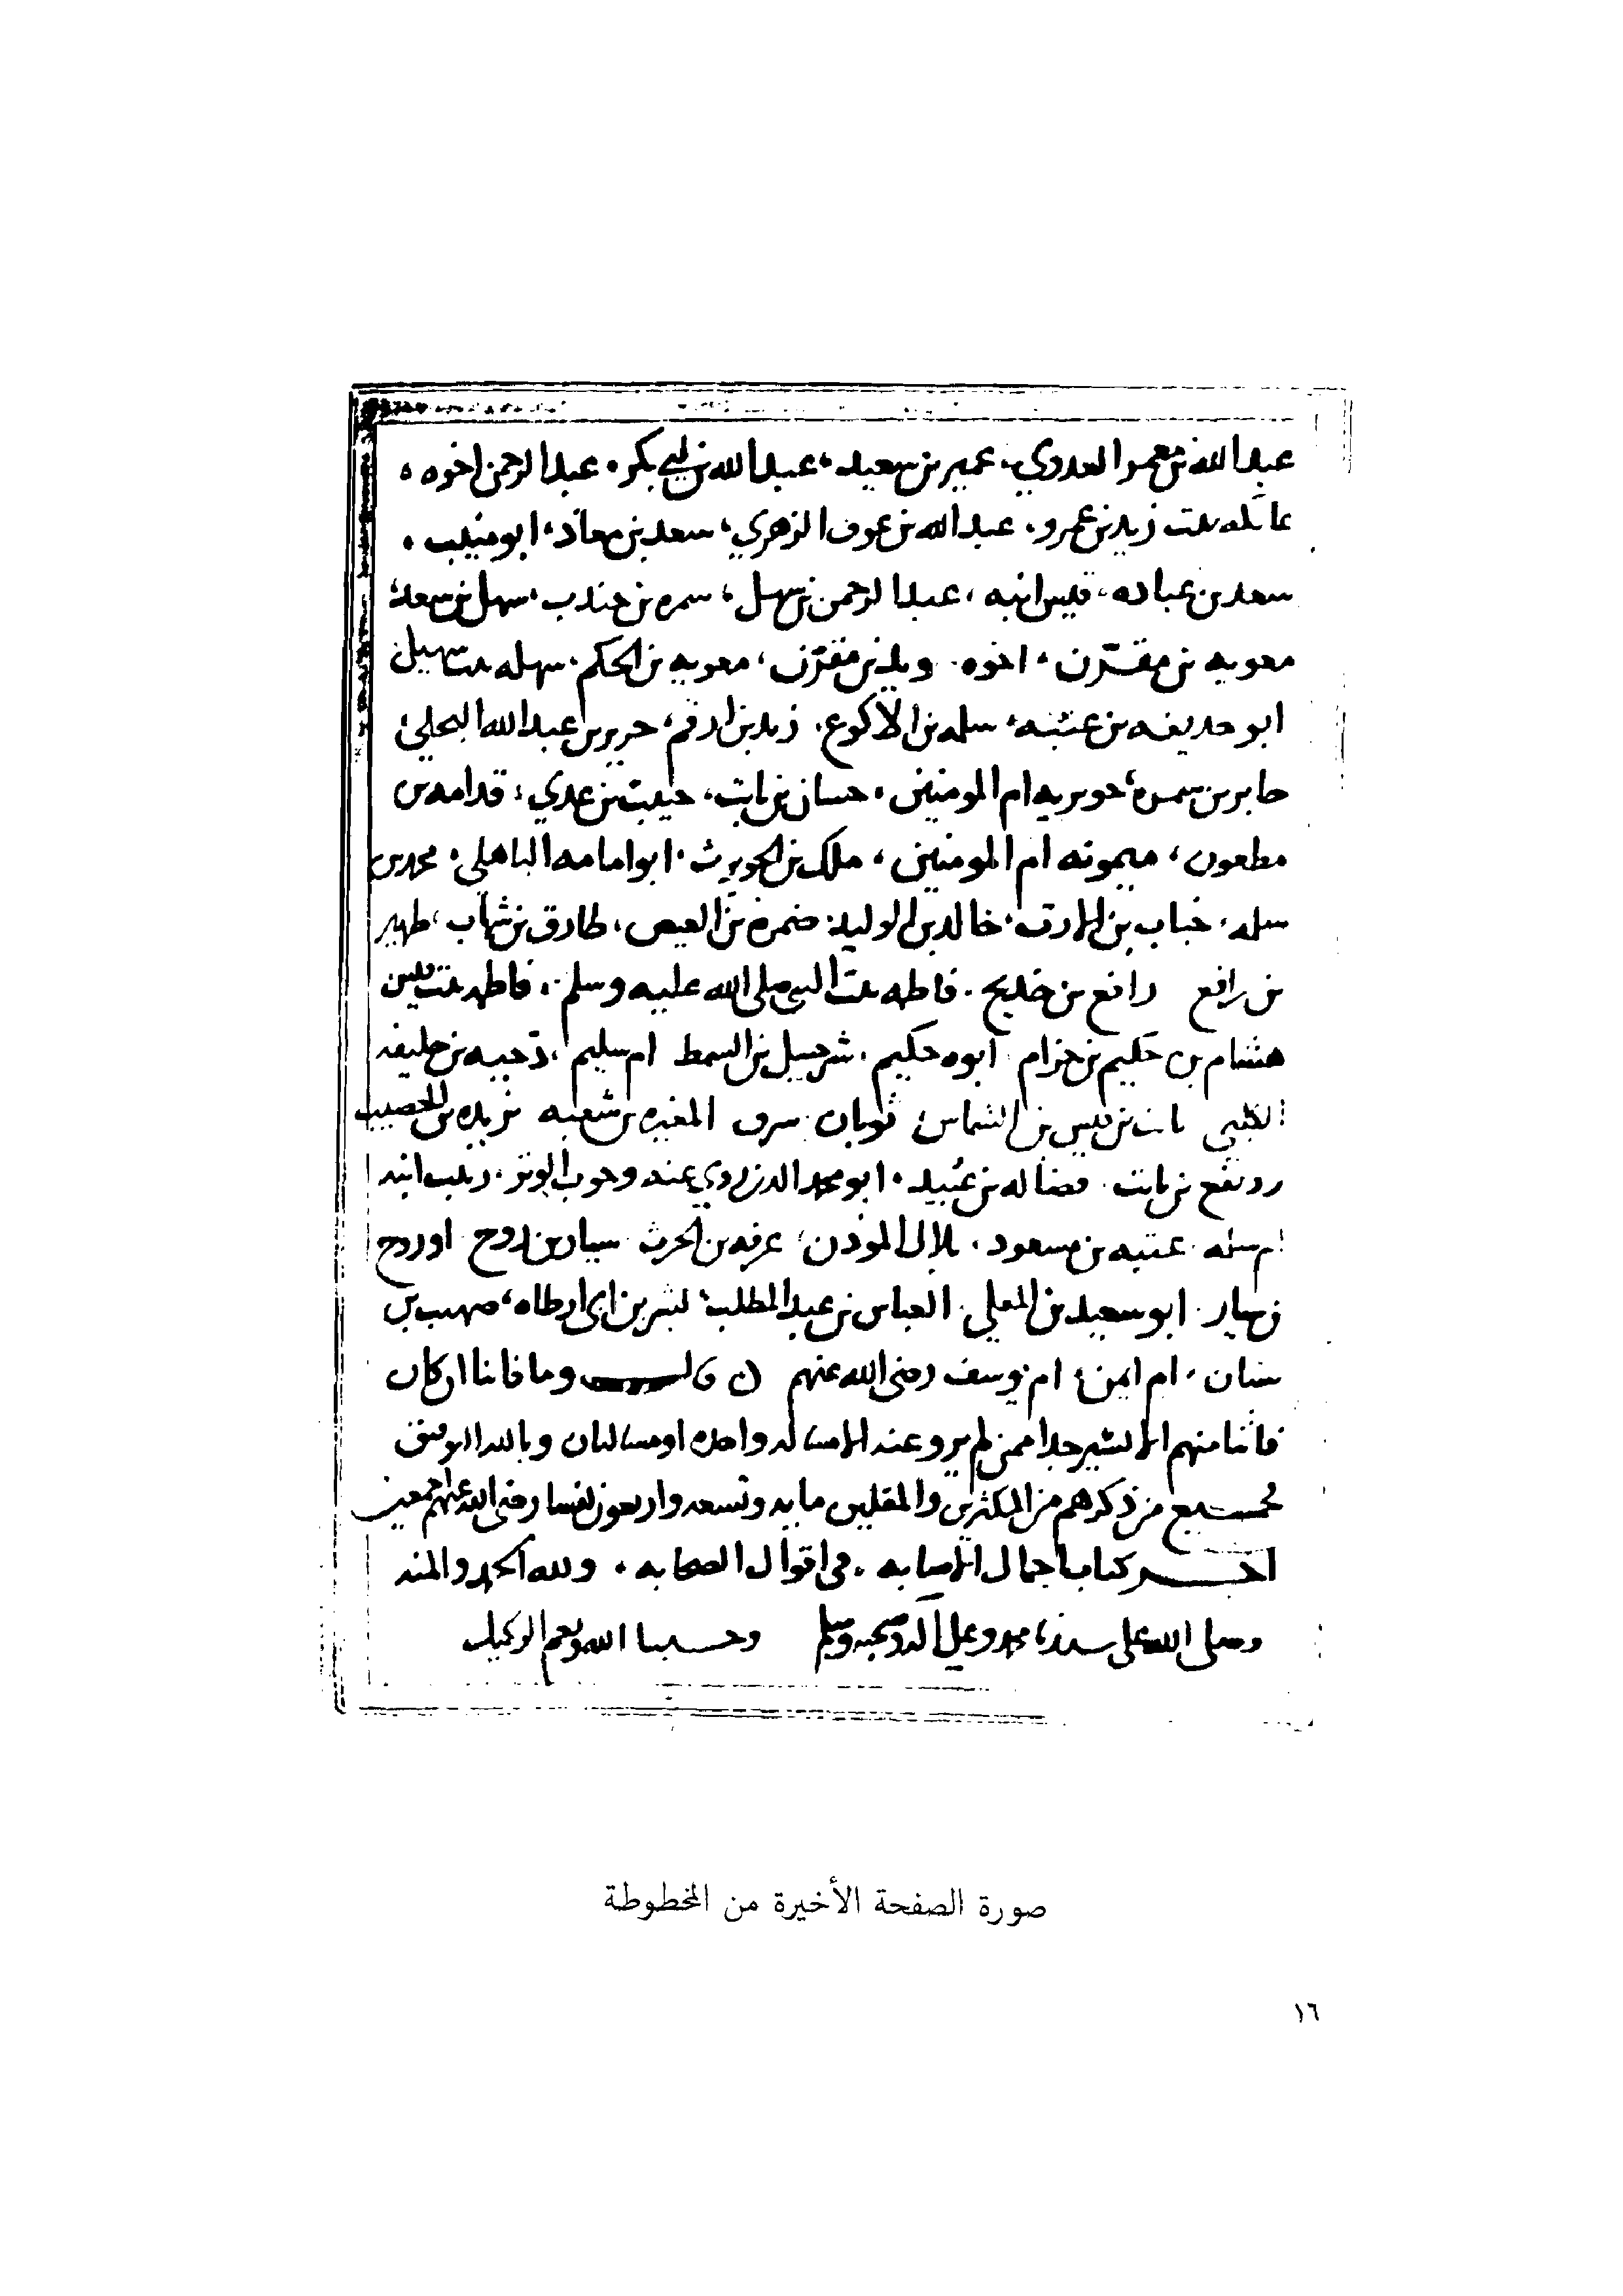 عبد الله بن معمر العدوي، عمير بن سعيد، عبد الله بن ابي بكر، عبد الرحمن اخوه،
عاتكه بنت زيد بن عمرو، عبد الله بن عوف الزهري، سعد بن معاذ، ابو منيب،
سعد بن عباده، قيس ابنه، عبد الرحمن بن سهل، سمره بن جندب، سهل بن سعد،
معويه بن مقرن، اخوه سويد بن مقرن، معويه بن الحكم، سهله بنت سهيل
ابو حذيفه بن عتبه، سلمه بن الاكوع، زيد بن ارقم، جرير بن عبد الله البجلي،
جابر بن سمره، جويريه ام المومنين، حسان بن ثابت، حبيب بن عدي، قدامه بن
مظعون، ميمونه ام المومنين، ملك بن الحويرث، ابو امامه الباهلي، محمد بن
سلمه، خباب بن الارت، خالد بن الوليد، ضمره بن العيص، طارق بن شهاب، ظهير
بن رافع رافع بن خديج، فاطمه بنت النبي صلى الله عليه وسلم، فاطمه بنت قيس
هشام بن حكيم بن حزام ابوه حكيم، شرحبيل بن السمط ام سليم، دحيه بن خليفه
الكلبي ثابت بن قيس بن الشماس، ثوبان سرق المغيره بن شعبه بريده بن الحصيب
رويفع بن ثابت فضاله بن عبيد، ابو محمد الذي روي عنه وجوب الوتر، زينب ابنه
ام سلمه عتبه بن مسعود، بلال الموذن، عرفه بن الحرث سيار بن روح او روح
بن سيار ابو سعيد بن المعلي، العباس بن عبد المطلب، بشر بن ابي ارطاه، صهيب بن
سنان، ام ايمن، ام يوسف رضي الله عنهم قالــــ وما فاتنا ان كان
فاتنا منهم الا اليسير جدا ممن لم يرو عنه الا مساله واحده او مسالتان وبالله التوفيق
فجميع من ذكرهم من المكثرين والمقلين مايه وتسعه واربعون نفسا رضي الله عنهم اجمعين
اخــر كتاب اجمال الاصابه، في اقوال الصحابه، ولله الحمد والمنه
وصلى الله على سيدنا محمد وعلى اله وصحبه وسلم وحسبنا الله ونعم الوكيل
صورة الصفحة الأخيرة من المخطوطة
١٦